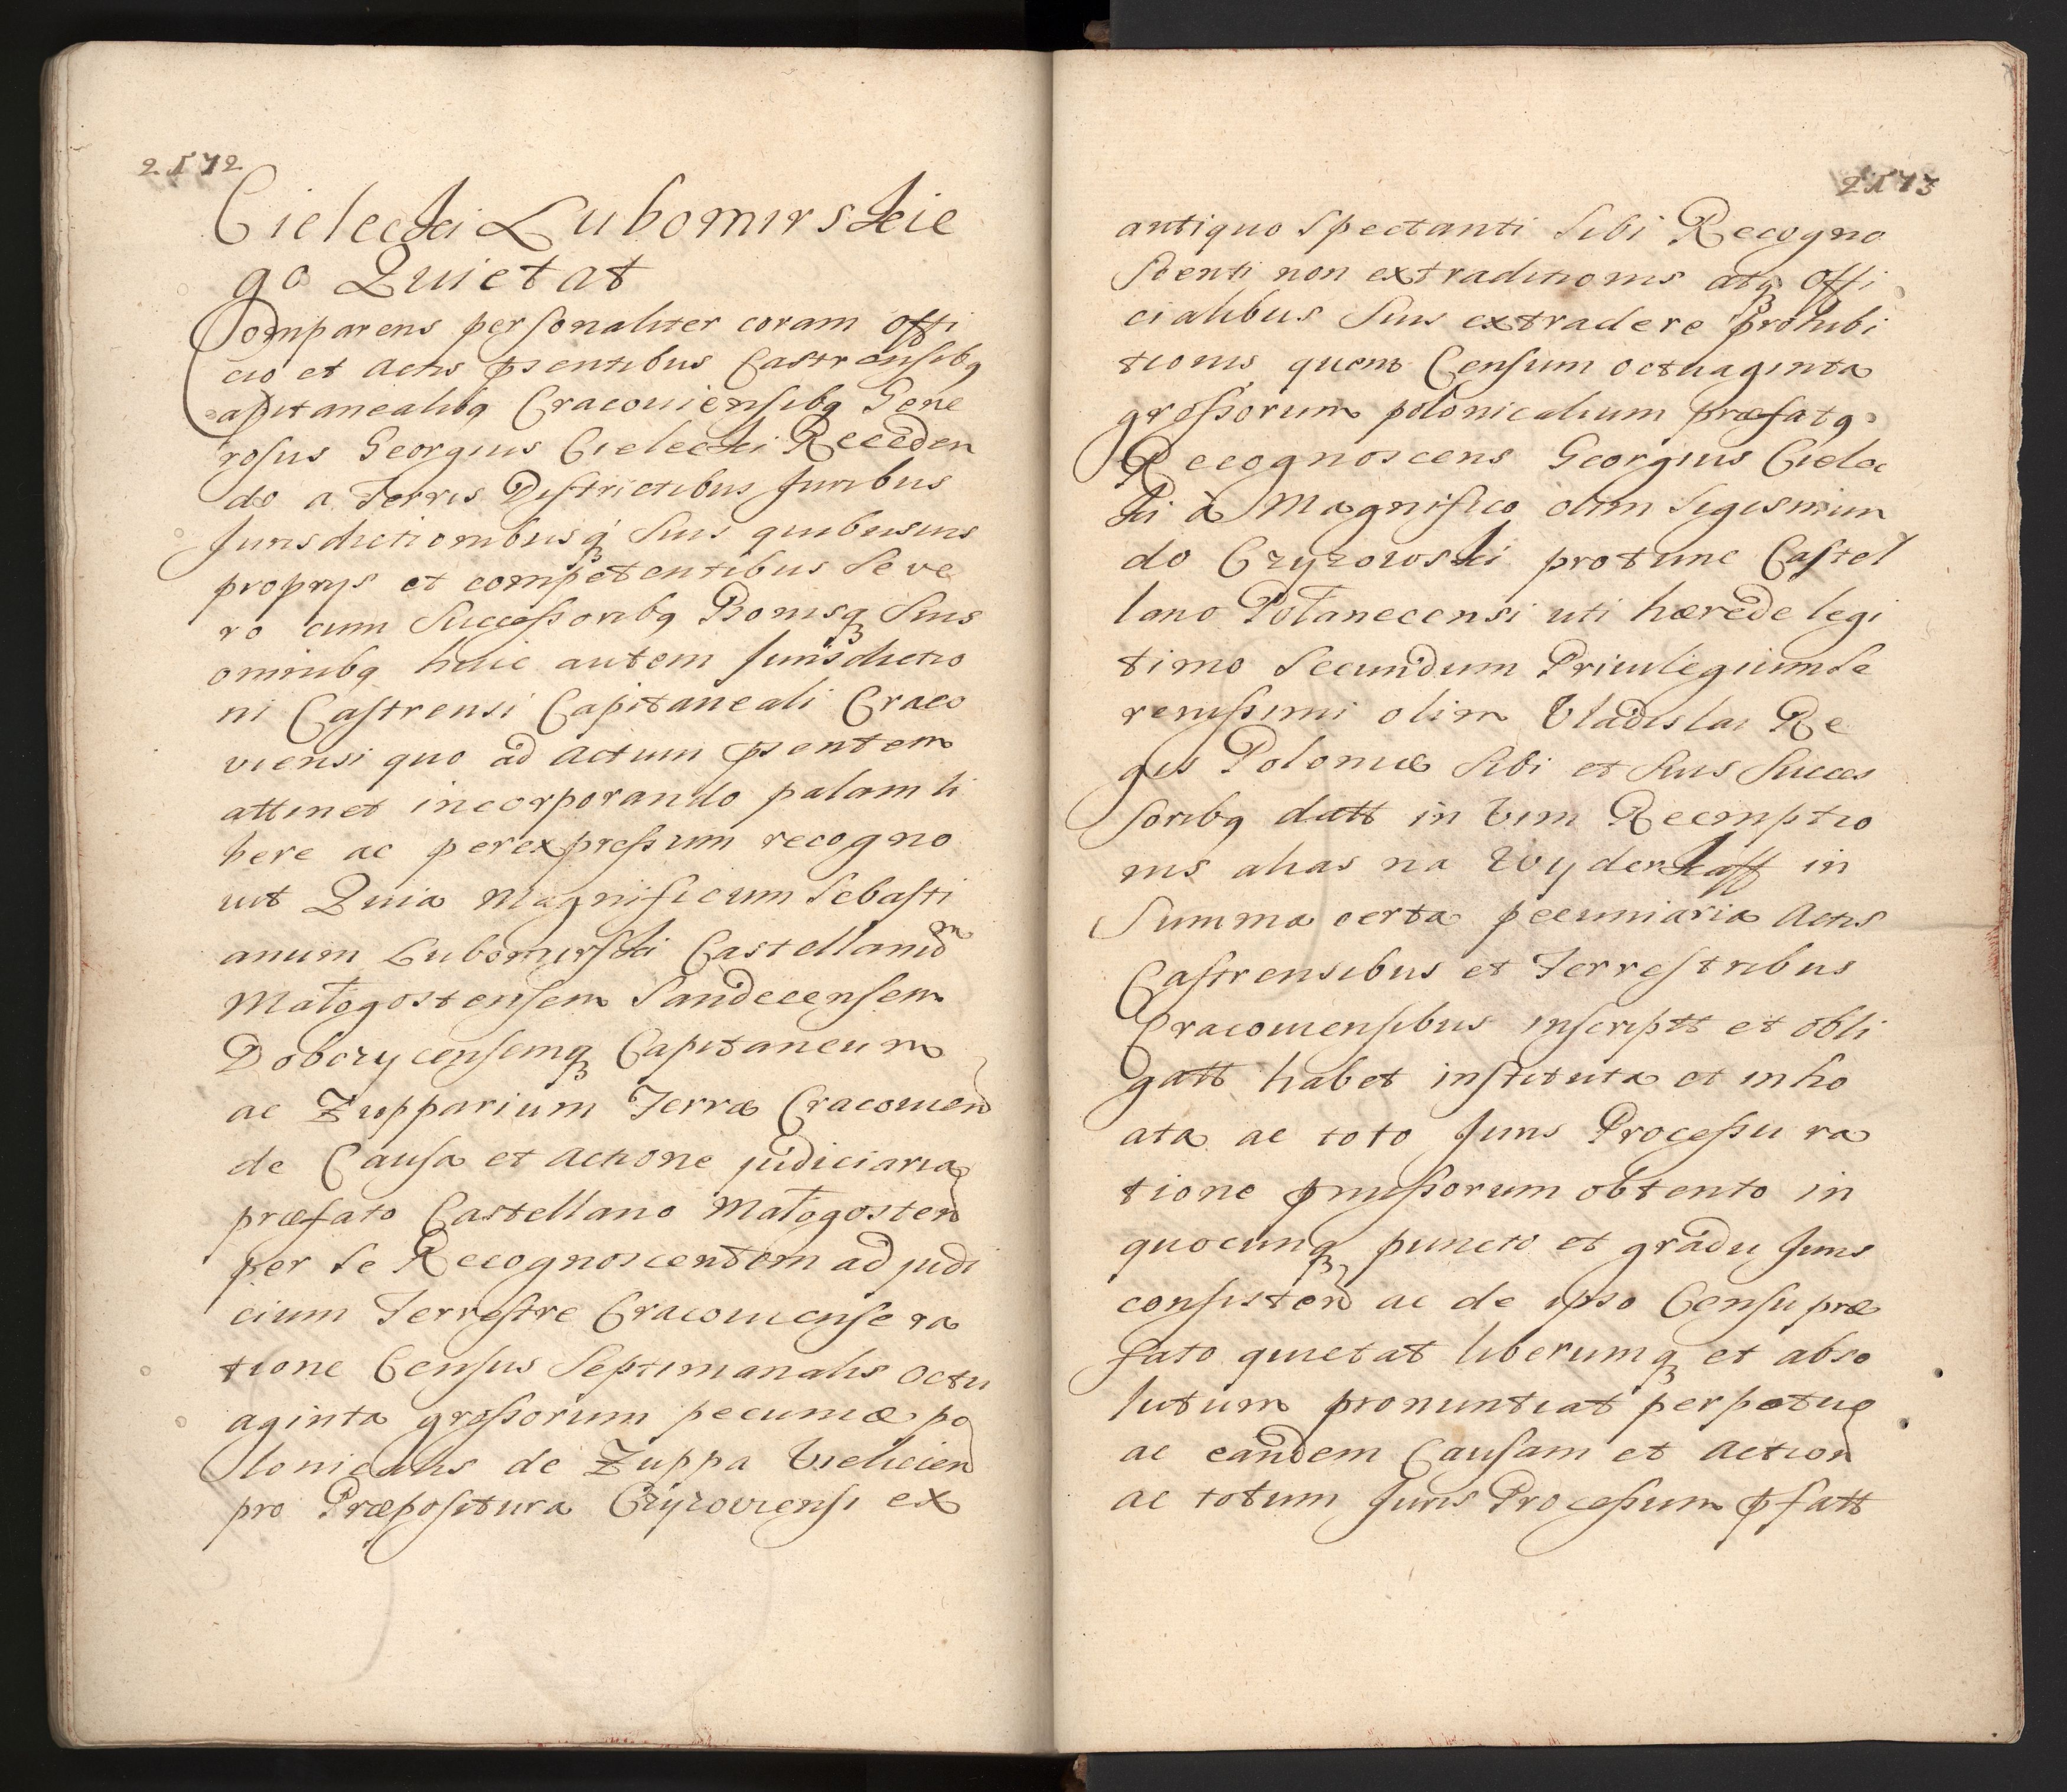 2172
Cielecki Lubomirskie
go Quietat
Comparens personaliter coram offi
cio et Actis pſentibus Castrensibq
Capitanealibq Cracouiensibq Gene
rosus Georgius Cielecki Receden
do a Terris Districtibus Juribus
Jurisdictionibusq suis quibusuis
proprijs et competentibus se ve
ro cum Successoribq Bonisq suis
omnibq huic autem Jurisdictio
ni Castrensi Capitaneali Craco
viensi quo ad Actum pſentem
attinet incorporando palam li
bere ac per expressum recogno
uit Quia Magnificum Sebasti
anum Lubomirski Castellanũ
Małogostensem Sandecensem
Dobczycensemq Capitaneum
ac Zupparium Terræ Cracouien
de Causa et Actione judiciaria
præfato Castellano Małogosten
per se Recognoscentem ad judi
cium Terrestre Cracouiense ra
tione Census Septimanalis octu
aginta grossorum pecuniæ po
lonicalis de Zuppa Vielicien
pro Præpositura Czyzoviensi ex
2173
antiquo Spectanti sibi Recogno
scenti non extraditionis atq offi
cialibus suis extradere prohibi
tionis quem Censum octuaginta
grossorum polonicalium præfatq
Recognoscens Georgius Cielec
ki a Magnifico olim Sigismun
do Czyzowski protunc Castel
lano Połanecensi uti hærede legi
timo Secundum Priuilegium Se
renissimi olim Vladislai Re
gis Poloniæ sibi et suis Succes
soribq datt in Vim Reemptio
nis alias na Wyderkaff in
Summa certa pecuniaria Actis
Castrensibus et Terrestribus
Cracouiensibus inscriptt et obli
gatt habet instituta et inho
ata ac toto Juris Processu ra
tione pmissorum obtento in
quocunq puncto et gradu Juris
consisten ac de ipso Censu præ
fato quietat liberumq et abso
lutum pronuntiat perpetuo
ac eandem Causam et Action
ac totum Juris Processum pfatt